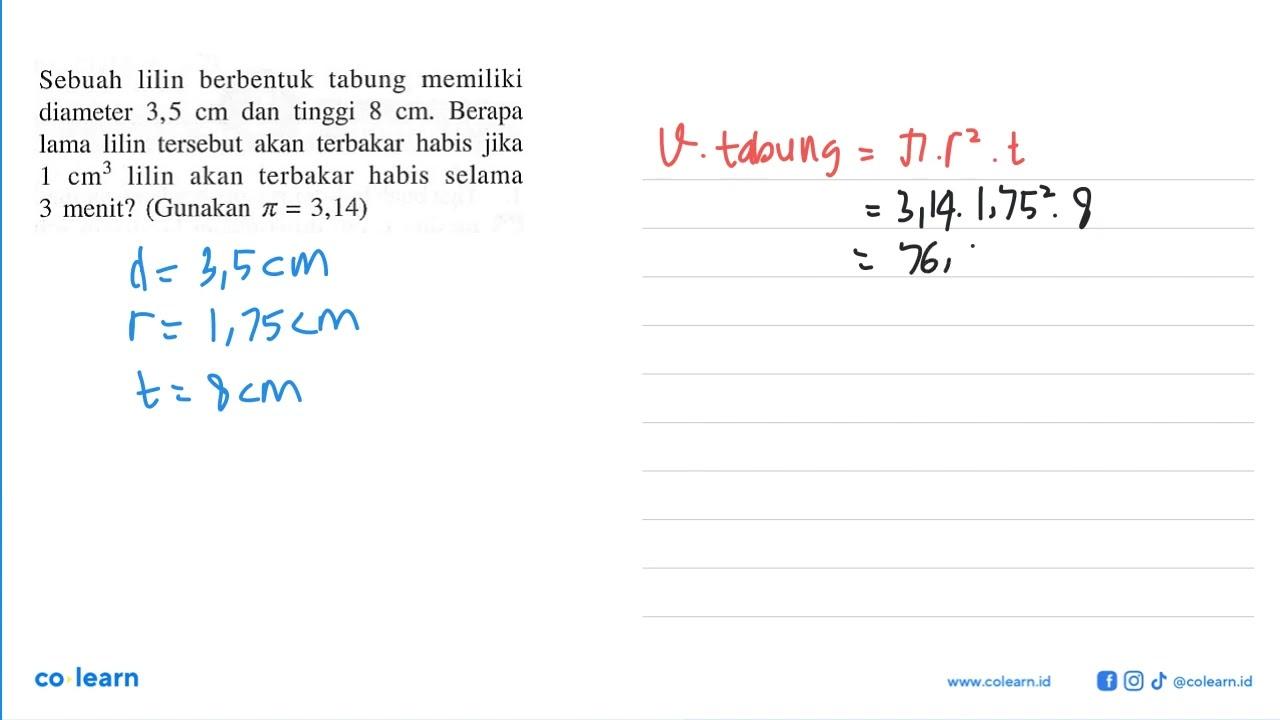 Sebuah lilin berbentuk tabung memiliki
diameter 3,5 cm dan tinggi 8 cm. Berapa
lama lilin tersebut akan terbakar habis jika
1 cm³ lilin akan terbakar habis selama
3 menit? (Gunakan π = 3,14)
d = 3,5 cm
r = 1,75 cm
t = 8 cm
V. tabung = π . r² . t
= 3,14 . 1,75² . 8
= 76,
co learn
www.colearn.id
@colearn.id